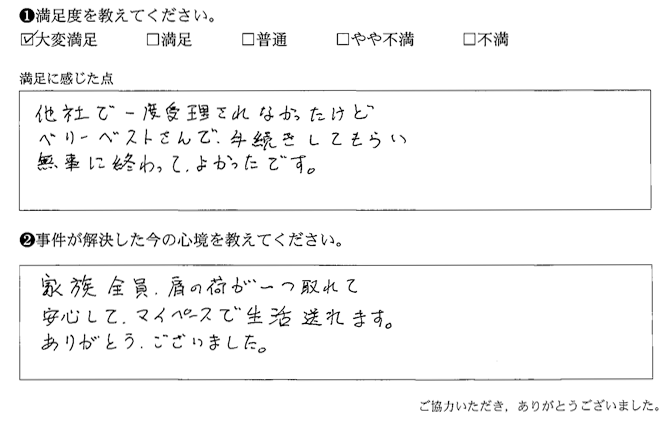 ❶満足度を教えてください。
☑大変満足　□満足　□普通　□やや不満　□不満
満足に感じた点
他社で一度受理されなかったけど
ベリーベストさんで、手続きしてもらい
無事に終わって、よかったです。
❷事件が解決した今の心境を教えてください。
家族全員、肩の荷が一つ取れて
安心して、マイペースで生活送れます。
ありがとう、ございました。
ご協力いただき，ありがとうございました。